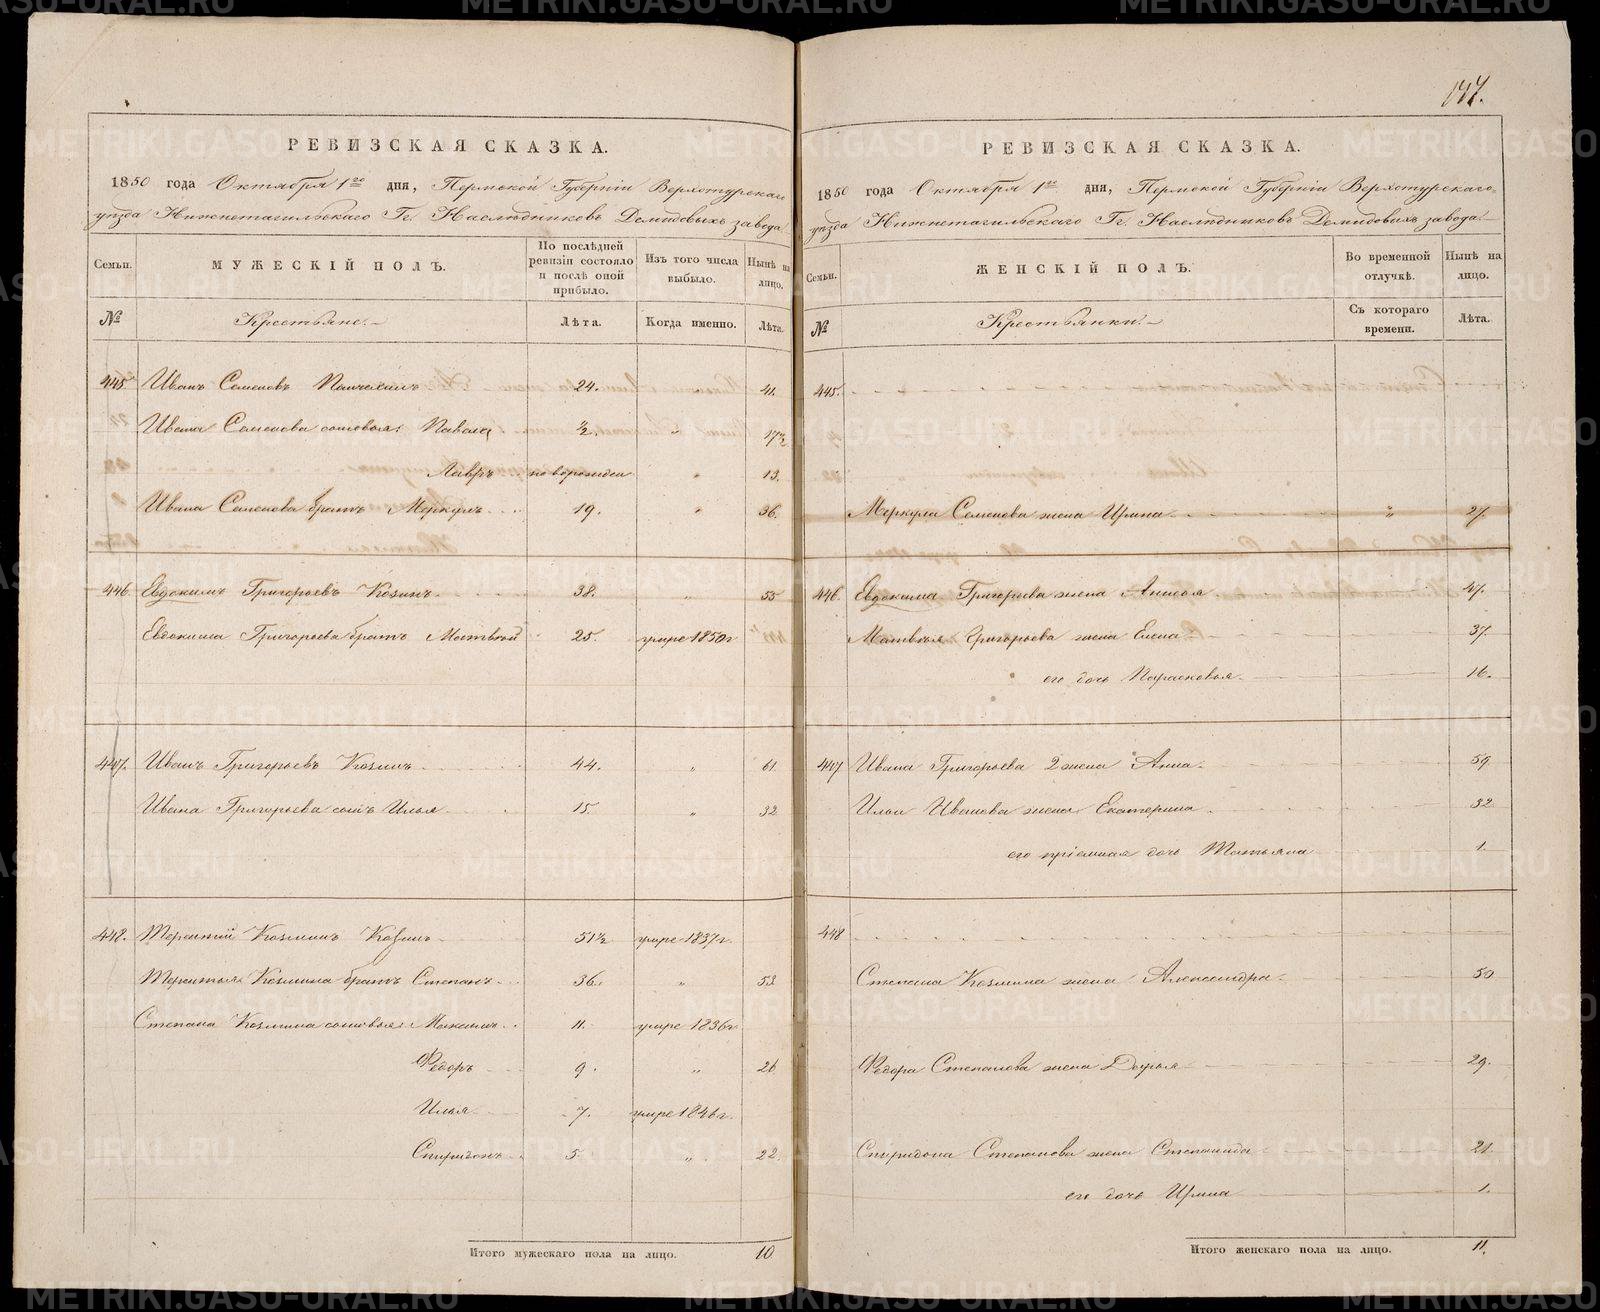 147.
РЕВИЗСКАЯ СКАЗКА.
1850 года Октября 1го дня, Пермской Губерніи Верхотурскаго
уѣзда Нижнетагильскаго Гг. Наслѣдниковъ Демидовыхъ завода.
Семьи. МУЖЕСКІЙ ПОЛЪ. По послѣдней ревизіи состояло и послѣ оной прибыло. Изъ того числа выбыло. Нынѣ на лицо.
№ Крестьяне. Лѣта. Когда именно. Лѣта.
445 Иванъ Семеновъ 24. 41.
Ивана Семенова сыновья: Павелъ ½. " 17½
Лавръ новорожден " 13.
Ивана Семенова братъ Меркулъ 19. " 36.
446 Евдокимъ Григорьевъ Козинъ 38. " 55
Евдокима Григорьева братъ Матвѣй 25. умре 1850г
447. Иванъ Григорьевъ Козинъ 44. " 61
Ивана Григорьева сынъ Илья 15. " 32
448. Терентій Козминъ Козинъ 51½ умре 1837г.
Терентья Козмина братъ Степанъ 36. " 53
Степана Козмина сыновья: Максимъ 11. умре 1836г
Ѳедоръ 9. " 26
Илья 7. умре 1846г.
Спиридонъ 5 " 22.
Итого мужескаго пола на лицо. 10
РЕВИЗСКАЯ СКАЗКА.
1850 года Октября 1го дня, Пермской Губерніи Верхотурскаго
уѣзда Нижнетагильскаго Гг. Наслѣдниковъ Демидовыхъ завода.
Семьи. ЖЕНСКІЙ ПОЛЪ. Во временной отлучкѣ. Нынѣ на лицо.
№ Крестьянки. Съ котораго времени. Лѣта.
445.
Меркула Семенова жена Ирина " 27.
446 Евдокима Григорьева жена Анисья 47.
Матвѣя Григорьева жена Елена 37.
его дочь Парасковья 16.
447 Ивана Григорьева 2 жена Анна 59
Ильи Иванова жена Екатерина 32
его пріемная дочь Татьяна 1.
448
Степана Козмина жена Александра 50
Ѳедора Степанова жена Дарья 29.
Спиридона Степанова жена Степанида 21.
его дочь Ирина 1.
Итого женскаго пола на лицо. 11.
METRIKI.GASO-URAL.RU